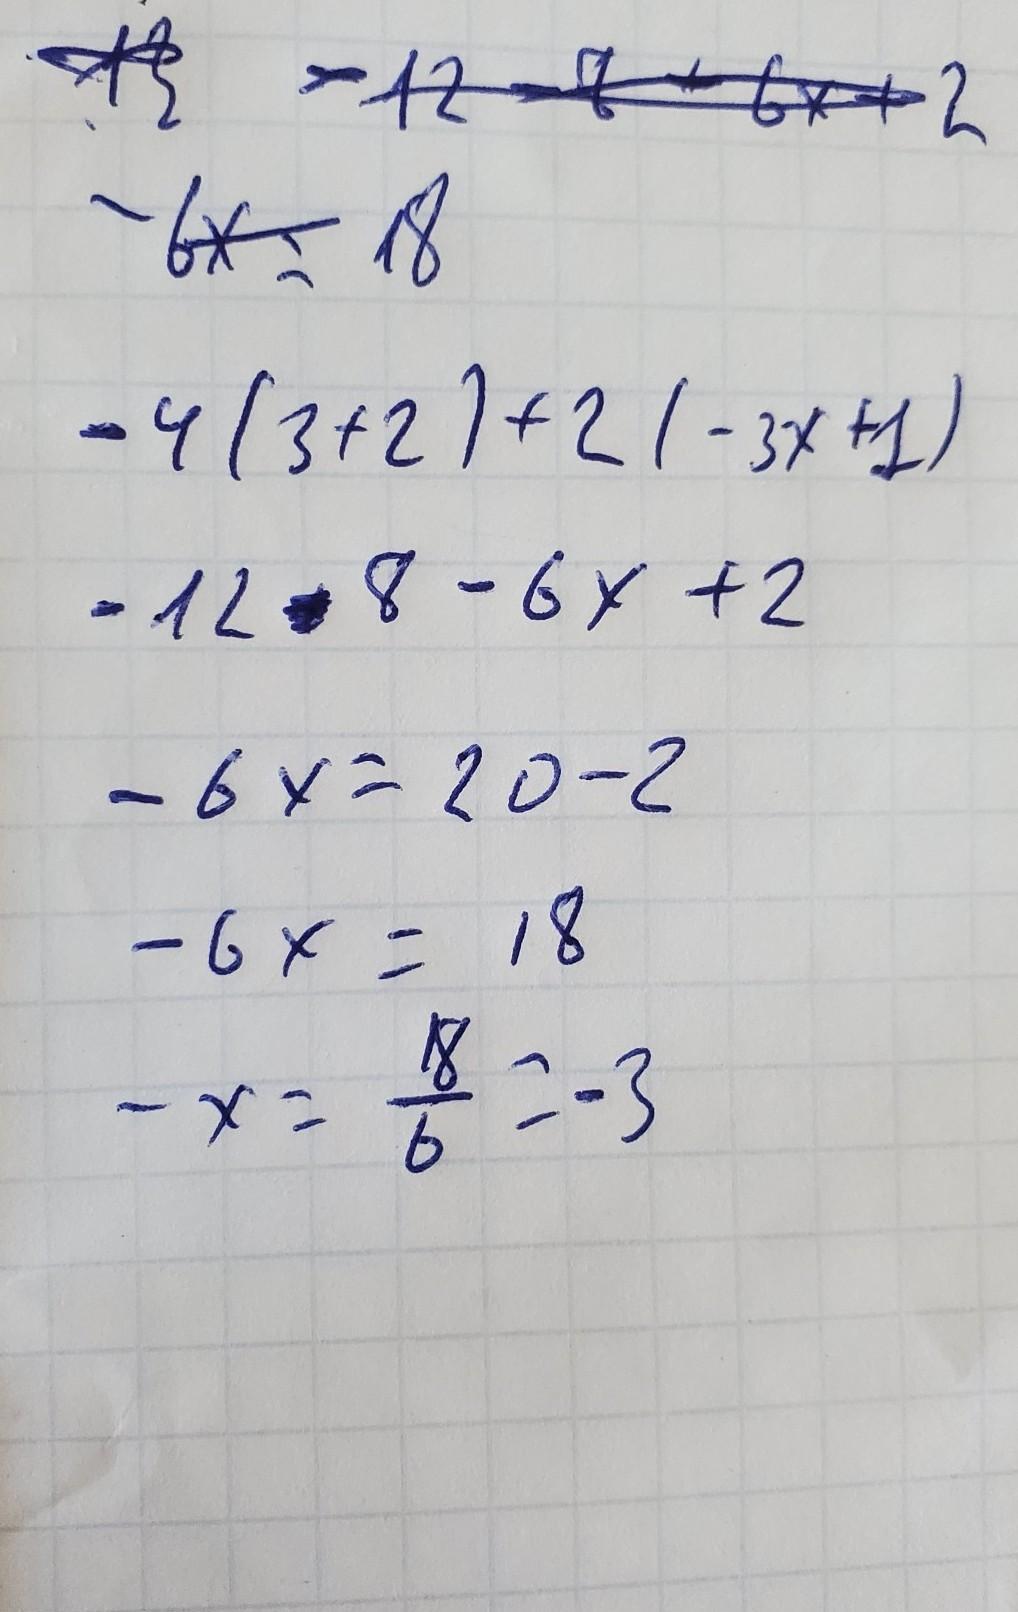 -12 - 8 - 6x + 2
-6x = 18
-4(3+2)+2(-3x+1)
-12 - 8 - 6x + 2
-6x = 20-2
-6x = 18
-x = 18/6 = -3